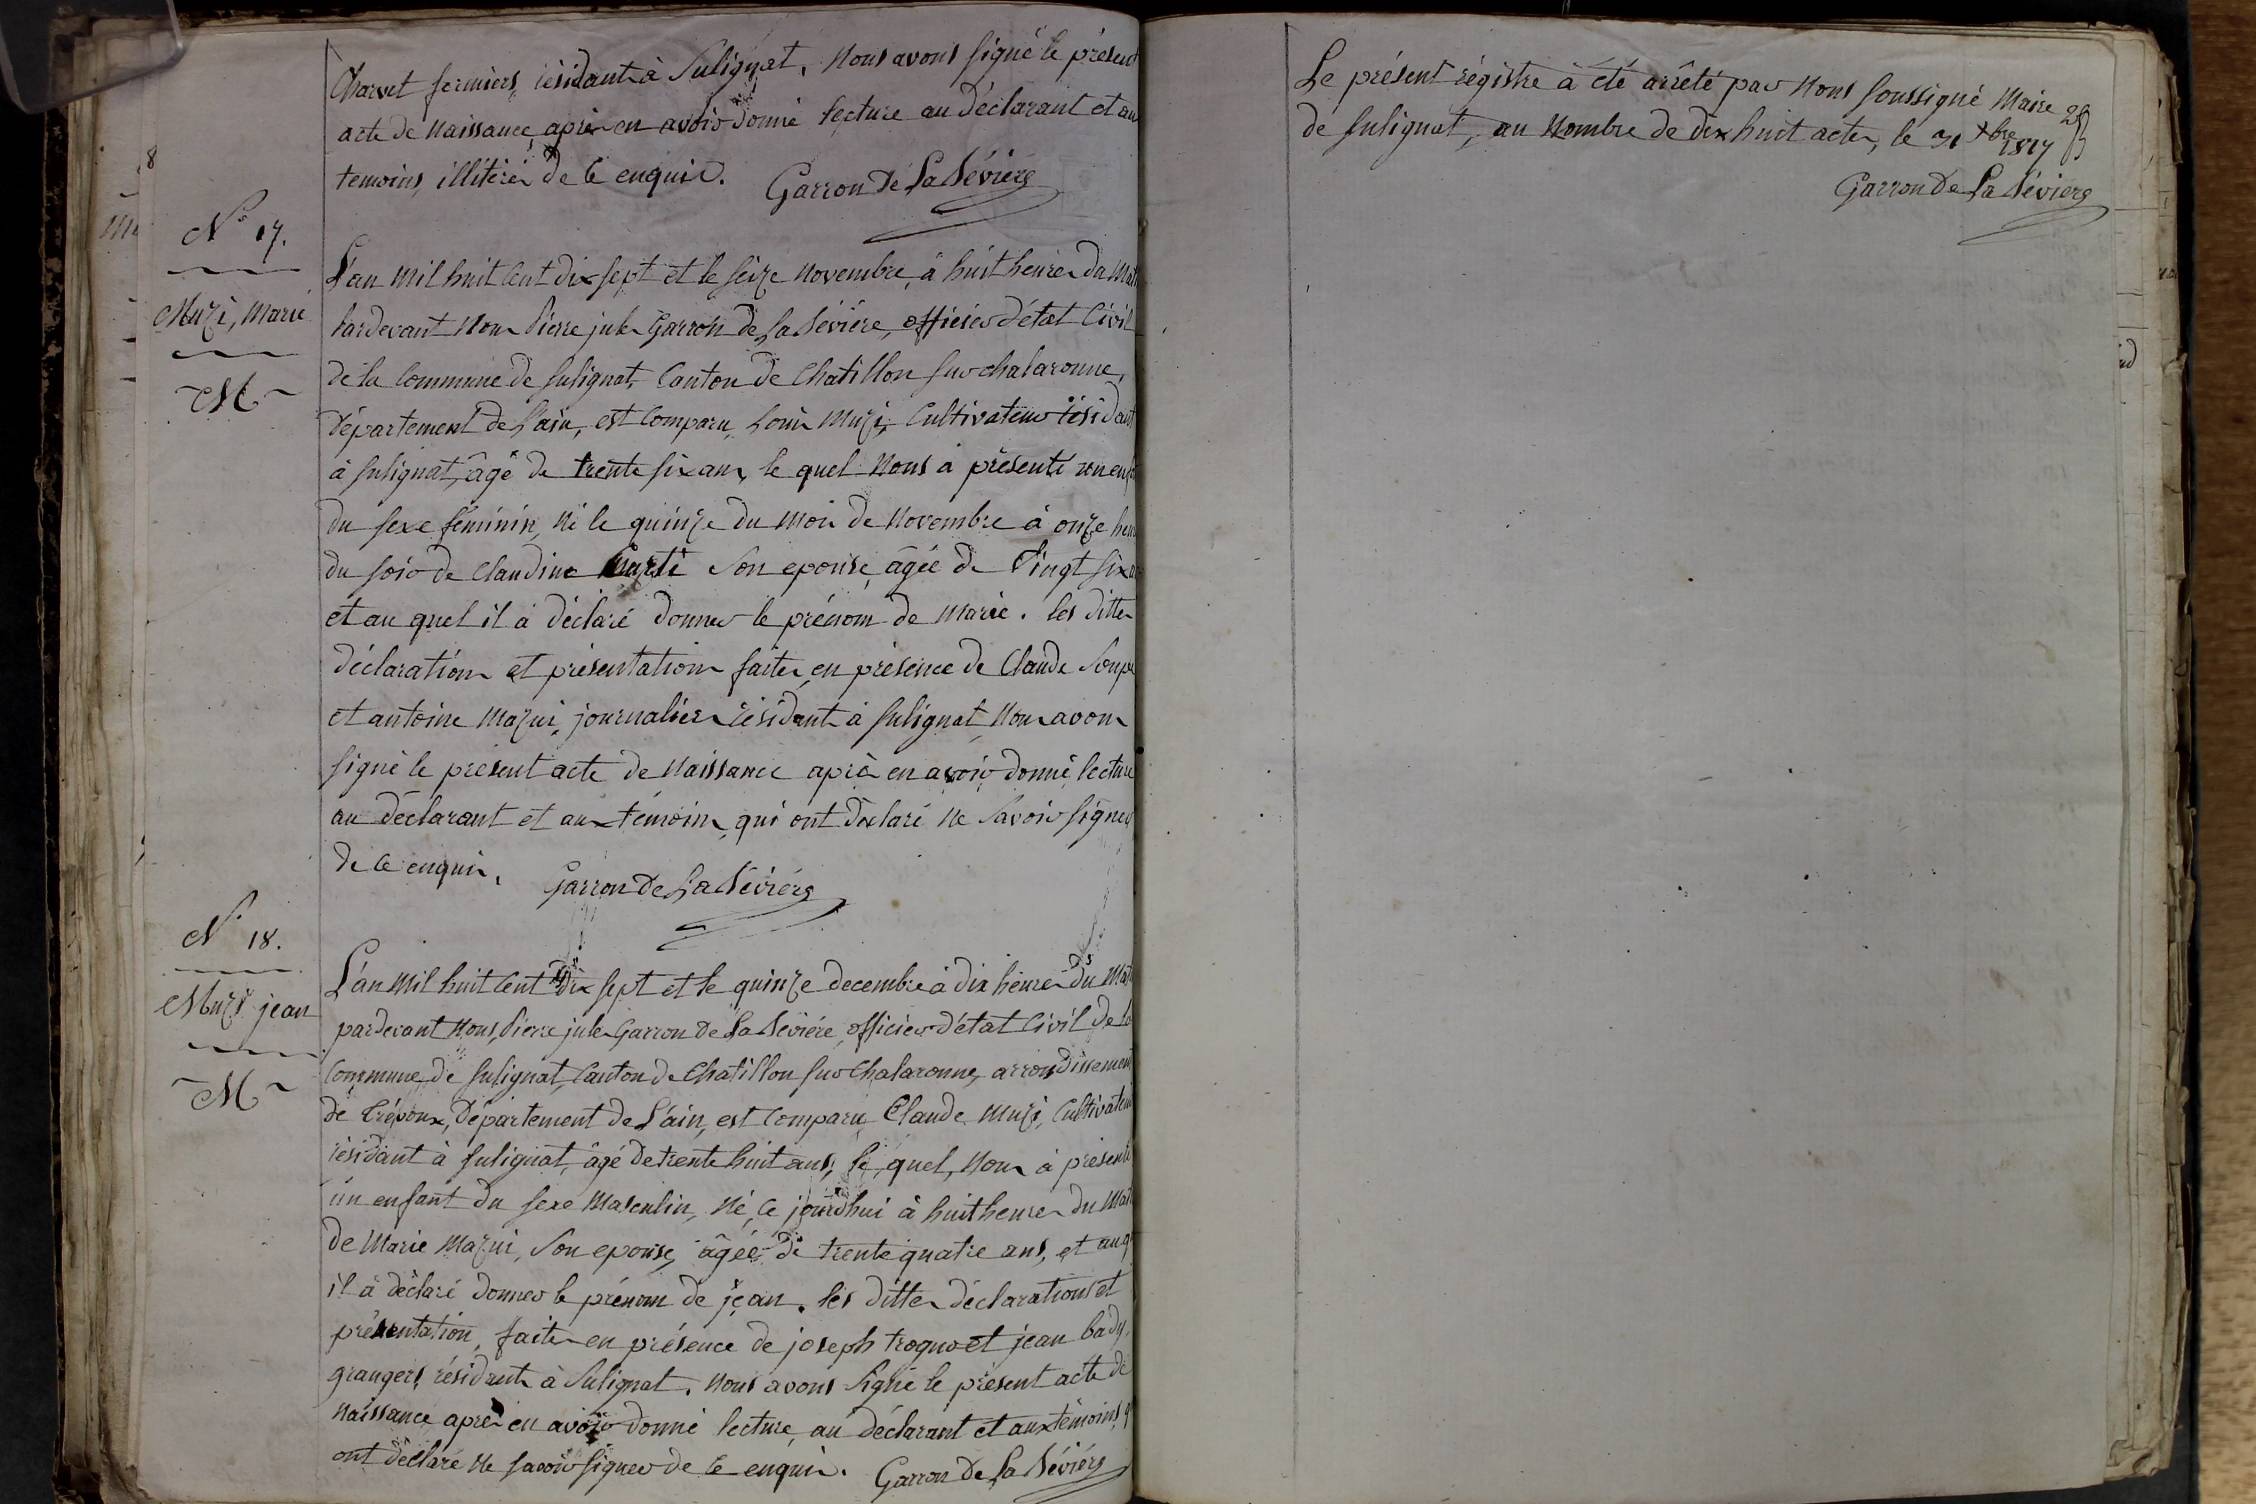 Charvet fermiers, résidants à Sulignat, Nous avons signé le présent
acte de Naissance après en avoir donné lecture au déclarant et aux
temoins, illitérés de ce enquis. Garron De La Bévière
N° 17.
Muzi, Marie
M
L'an mil huit cent dix sept et le seize novembre, à huit heures du mat
pardevant Nous Pierre jules Garron de La Bévière, officier d'état Civil
de la Commune de Sulignat, Canton de Chatillon sur chalaronne,
Département de l'ain, est comparu, Louis Muzi, Cultivateur résidant
à Sulignat, âgé de trente six ans, le quel Nous à présenté un enf
du sexe féminin, Né le quinze du mois de Novembre à onze heu
du soir de Claudine son epouse, âgée de Vingt six a
et au quel il à déclaré donner le prénom de Marie. les dittes
déclaration et présentation faites en présence de Claude Soupe
et antoine Mazui, journaliers résidants à Sulignat, Nous avons
signé le présent acte de Naissance après en avoir donné lecture
au déclarant et aux témoins, qui ont déclaré Ne Savoir signer
de ce enquis. Garron De La Bévière
N° 18.
Muzi jean
M
L'an mil huit cent dix sept et le quinze decembre à dix heures du Mat
pardevant Nous, Pierre jules Garron de La Bévière, officier d'état Civil de la
Commune de Sulignat, Canton de Chatillon sur Chalaronne, arrondissement
de Trévoux, Département de L'ain, est comparu Claude Muzi, Cultivateur
résidant à Sulignat, âgé de trente huit ans, le quel, Nous à présenté
un enfant du sexe Masculin, Né, ce jourd'hui à huit heures du Mat
de Marie Mazui, Son epouse, âgée de trente quatre ans, et au q
il à déclaré donner le prénom de jean. les dittes déclarations et
présentation, faites en présence de joseph troquet et jean bady,
grangers, résidants à Sulignat. Nous avons signé le présent acte de
Naissance après en avoir donné lecture, au déclarant et aux témoins, q
ont déclaré Ne savoir signer de ce enquis. Garron De La Bévière
Le présent régistre à été arrêté par Nous soussigné Maire
de Sulignat, au Nombre de dix huit actes, le 31 Xbre 1817
Garron De La Bévière